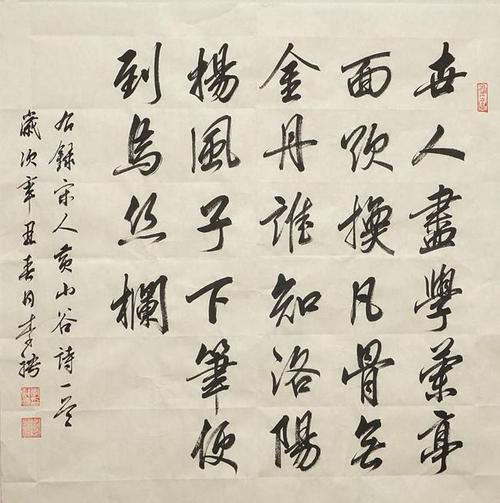 世人盡學蘭亭
面欲換凡骨無
金丹誰知洛陽
楊風子下筆便
到烏丝欄
右錄宋人黃山谷詩一首
歲次辛丑春月李